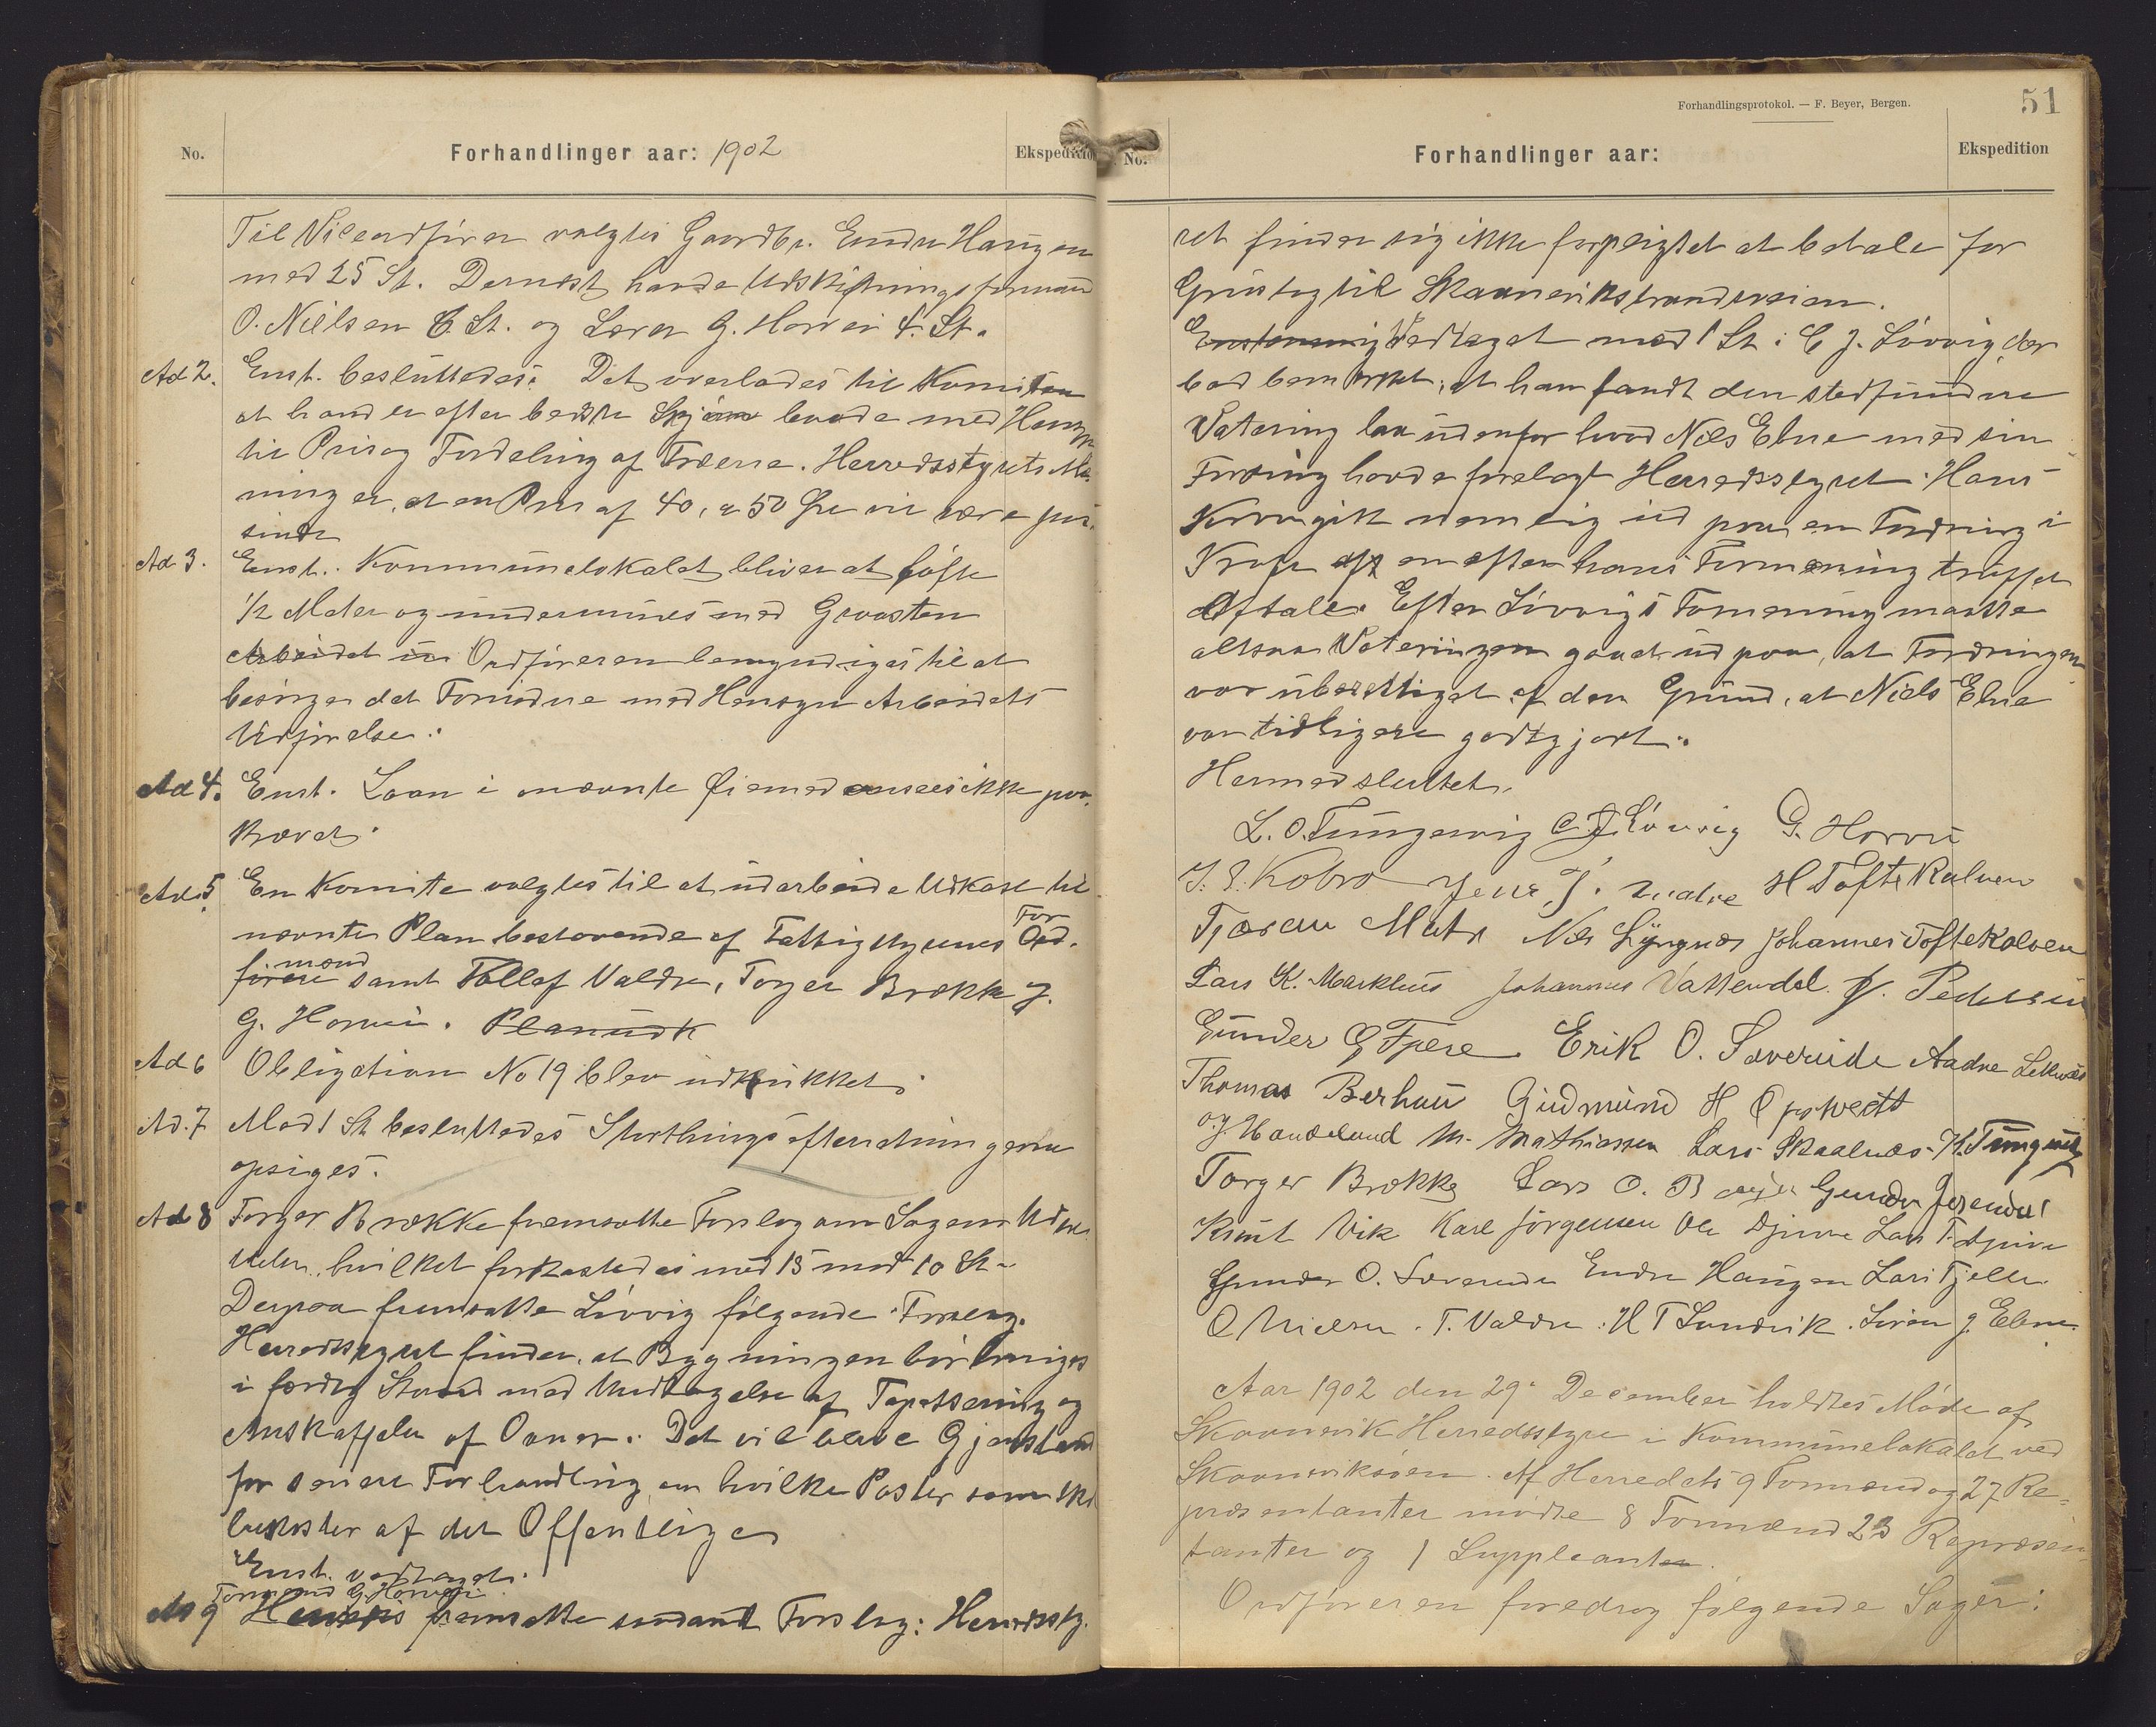 No.
Forhandlinger aar: 1902
Ekspeditio
Til Viceordfører valgtes Gaardbr. Endre Haugen
med 25 St. Dernæst havde Udskiftningsformand
O. Nielsen 6 St. og Lærer G. Horvei 4. St.
Ad 2. Enst. besluttedes: Det overlades til Komiteen
at handle efter bedste Skjøn baade med Hensyn
til Pris og Fordeling af Træerne. Herredsstyrets Me-
ning er, at en Pris af 40, a 50 Øre vil være pas-
sende
Ad 3. Enst.. Kommunelokalet bliver at løfte
1/2 Meter og undermures med Graasten
Arbeidet Ordføreren bemyndiges til at
besørge det Fornødne med Hensyn Arbeidets
Udførelse.
Ad 4. Enst. Laan i nævnte Øiemed ansees ikke paa-
krævet.
Ad. 5. En Komite valgtes til at udarbeide Udkast til
nævnte Plan bestaaende af Fattigstyrenes Ord- For
førere mænd samt Tollef Valdre, Torger Brække J.
G. Horvei. Planudk
Ad 6 Obligation No 19 blev udtrukket.
Ad. 7 Mod 1 St besluttedes Storthingsefterretningerne
opsiges.
Ad 8 Torger Brække fremsatte Forslag om Sagens Ud-
settelse, hvilket forkastedes med 15 mod 10 St.
Derpaa fremsatte Løvvig følgende Forslag.
Herredsstyret finder, at Bygningen bør bringes
i færdig Stand med Undtagelse af Tapetsering og
Anskaffelse af Ovner. Det vil blive Gjenstand
for senere Forhandling om hvilke Poster som skal
bekostes af det Offentlige
Enst. vedtaget.
Formand G. Horvei
Ad 9 fremsatte saadant Forslag: Herredssty-
Forhandlingsprotokol. — F. Beyer, Bergen.
51
No.
Forhandlinger aar:
Ekspedition
ret finder sig ikke forpligtet at betale for
Grustag til Skaaneviksstrandsveien.
Enstemmig Vedtaget mod 1 St: C J. Løvvig der
bad bemærket, at han fandt den stedfundne
Votering laa udenfor hvad Nils Ebne med sin
Fordring havde forelagt Herredsstyret. Hans
Krav gik nemlig ud paa en Fordring i
Kraft af en efter hans Formening truffet
Aftale. Efter Løvvigs Formening maatte
altsaa Voteringen gaaet ud paa, at Fordringen
var uberettiget af den Grund, at Niels Ebne
var tidligere godtgjort.
Hermed sluttet.
L. O. Tungesvig C J. Løvvig G. Horvei
J. E. Kobro Jens J. Matre H Toftekalven
Tjæran Matre Nils Lyngnæs Johannes Toftekalven
Lars K. Markhus Johannes Vattendal P. Pedersen
Gunder G Fjere Erik O. Sæverude Aadne Leknæs
Thomas Berhau Gudmund H Opsvedt
O. J. Handeland M. Mathiassen Lars Skaalnæs K. Tungesvig
Torger Brække Lars O. B Gunder Jøsendal
Knut Vik Karl Jørgensen Ole Djuve Lars T. Djuve
Gunder O. Sæverude Endre Haugen Lars Fjelle
O Nielsen. T. Valdre. H T Sundvik. Sivert J. Ebne.
Aar 1902 den 29. December holdtes Møde af
Skaanevik Herredsstyre i Kommunelokalet ved
Skaaneviksøen. Af Herredets 9 Formænd og 27 Re-
præsentanter mødte 8 Formænd 23 Repræsen-
tanter og 1 Suppleanter.
Ordføreren foredrog følgende Sager: